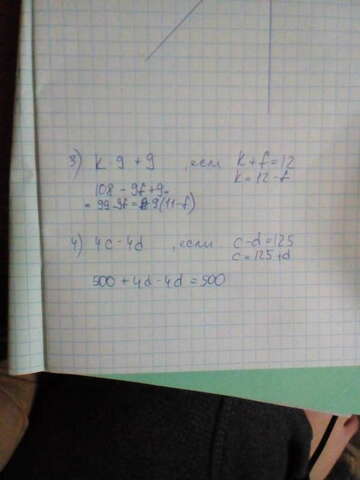 3) k 9 + 9 , если k + f = 12
k = 12 - f
108 - 9f + 9 =
= 99 - 9f = 9(11 - f)
4) 4c - 4d , если c - d = 125
c = 125 + d
500 + 4d - 4d = 500